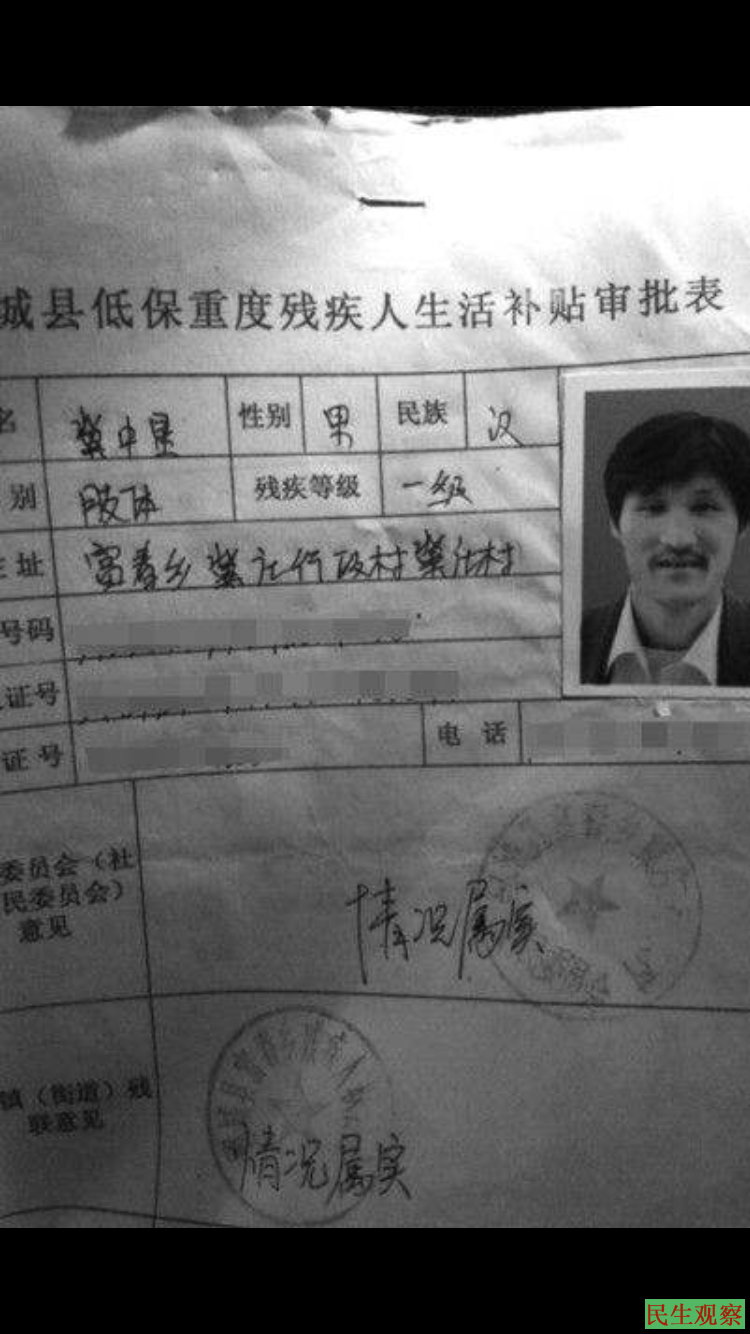 城县低保重度残疾人生活补贴审批表
名 冀中星 性别 男 民族 汉
别 肢体 残疾等级 一级
住址 富春乡冀庄行政村冀庄村
号码
证号
证号 电话
委员会（社
民委员会）
意见
情况属实
城县富春乡残疾人
镇（街道）残
联意见
情况属实
民生观察